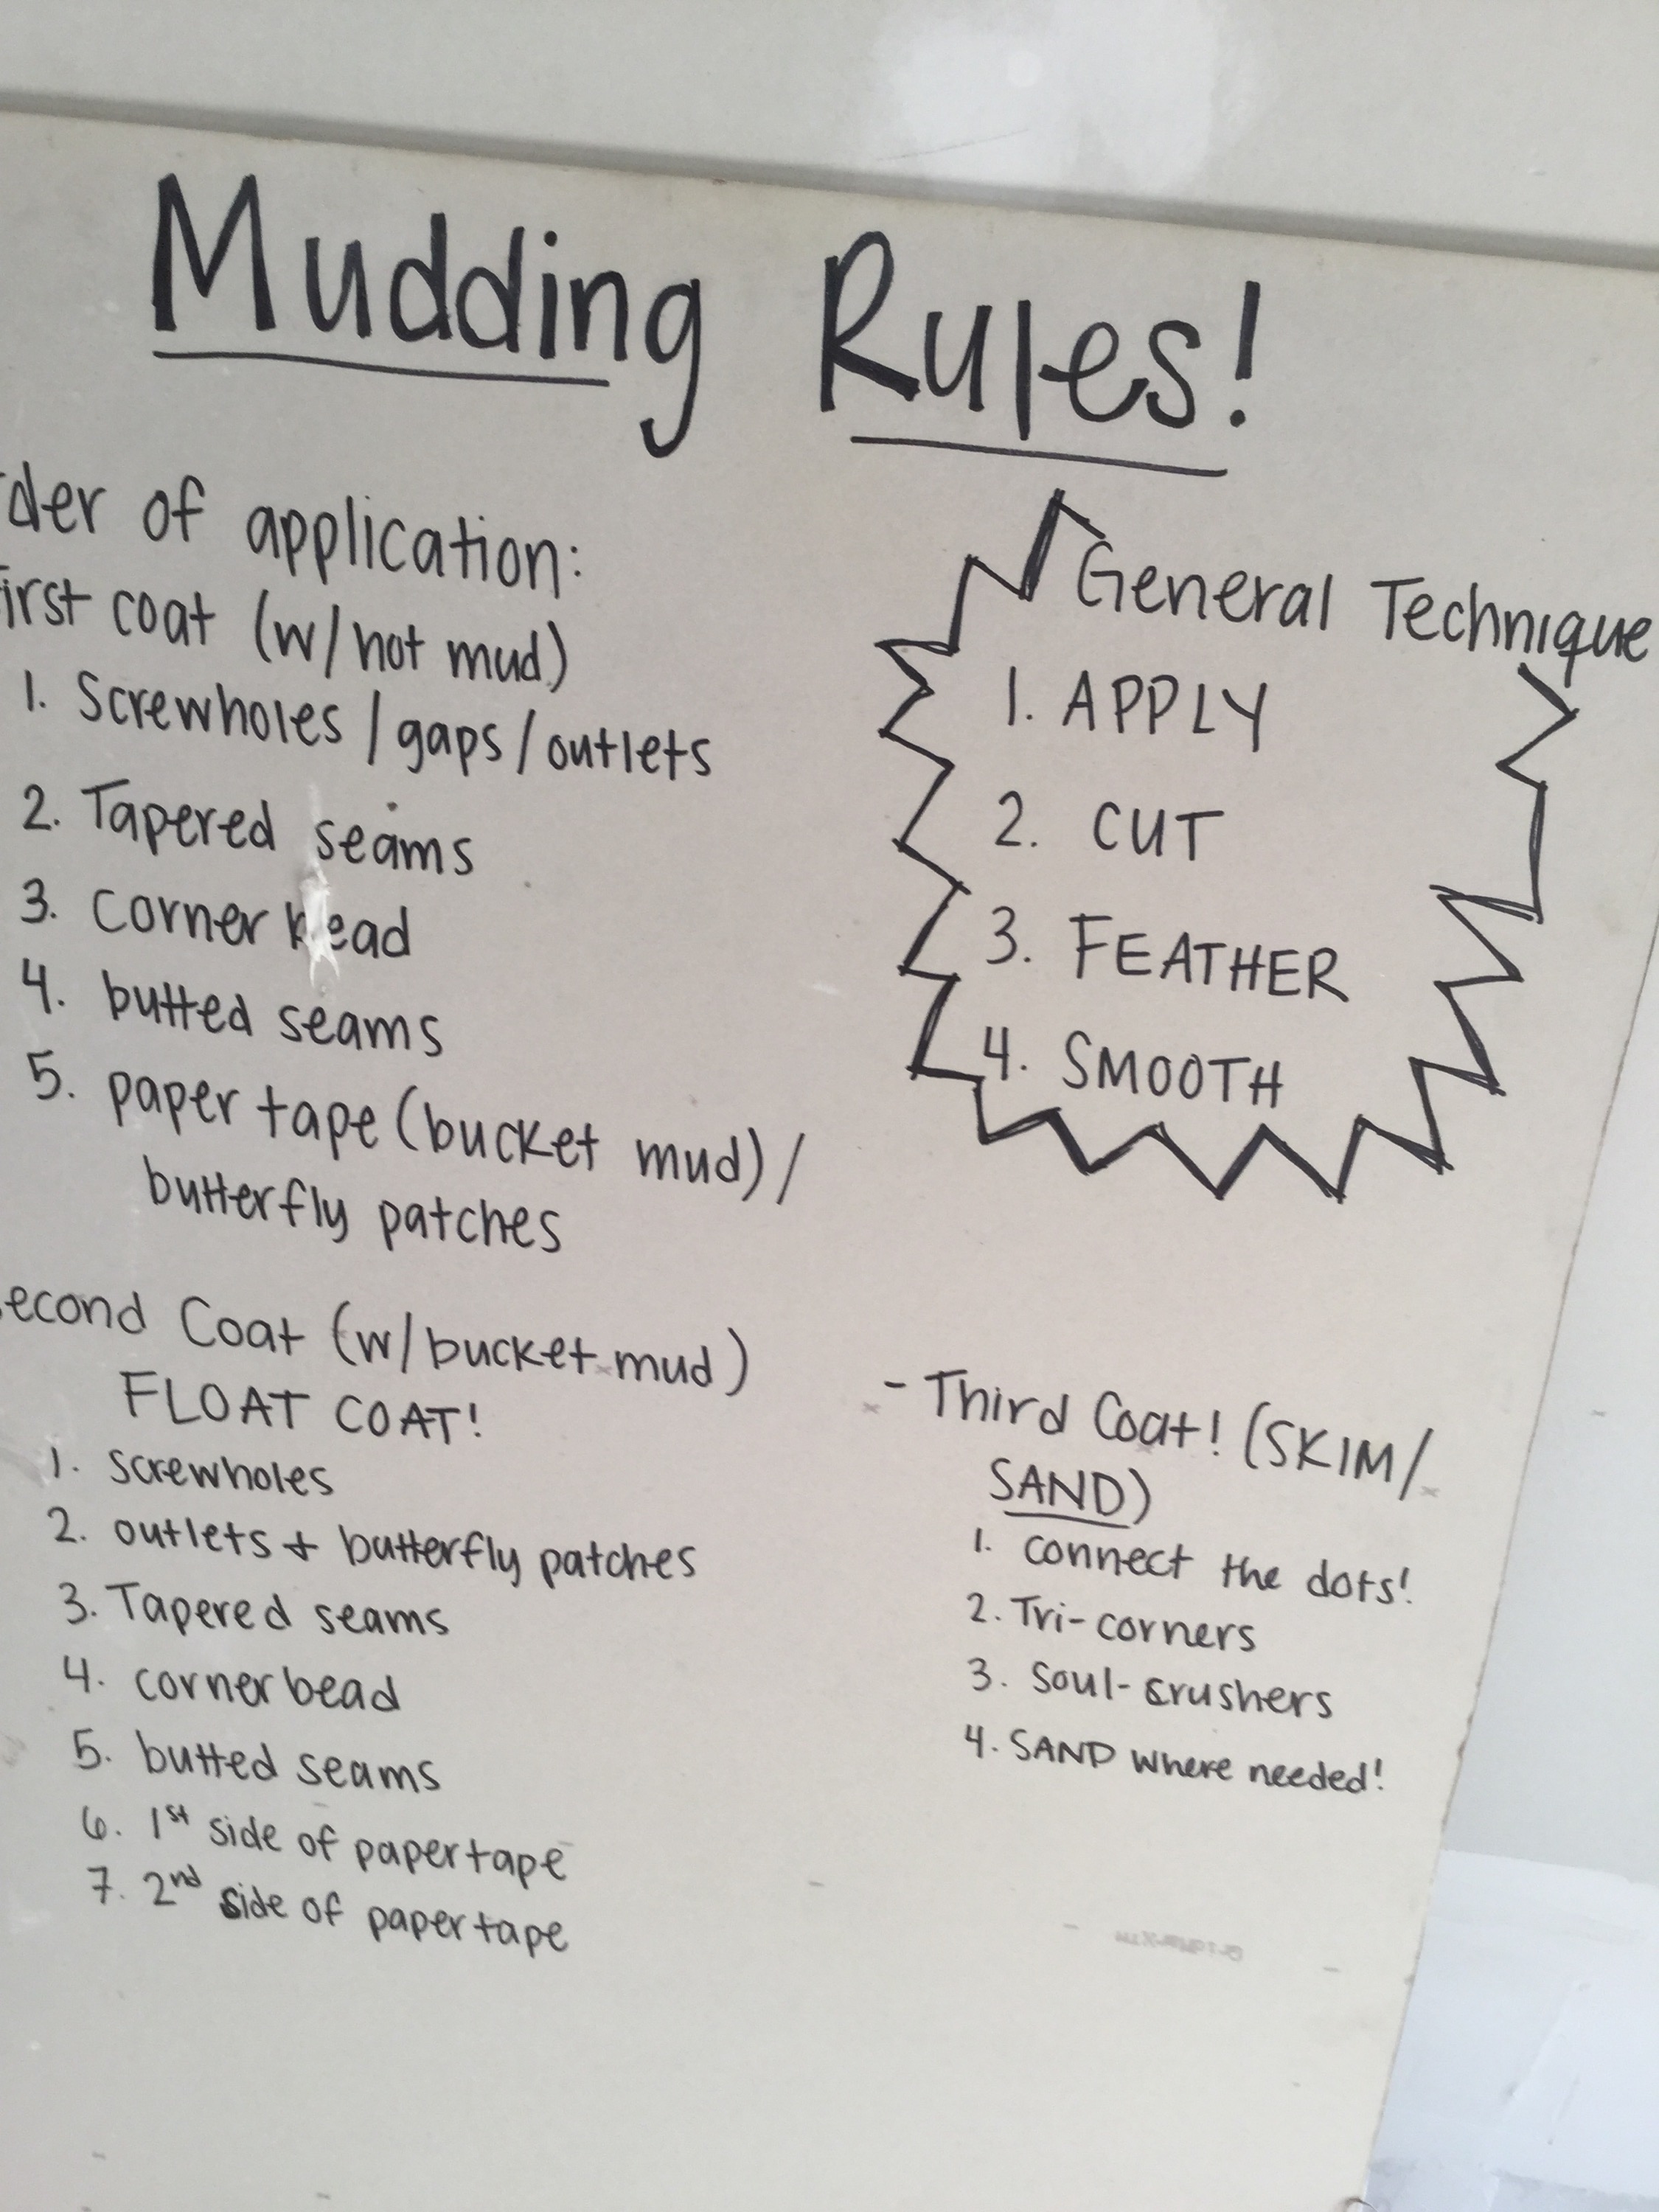 Mudding Rules!
der of application:
irst coat (w/ hot mud)
1. Screwholes / gaps / outlets
2. Tapered seams
3. corner bead
4. butted seams
5. paper tape (bucket mud) /
butterfly patches
econd Coat (w/ bucket mud)
FLOAT COAT!
1. screwholes
2. outlets + butterfly patches
3. Tapered seams
4. corner bead
5. butted seams
6. 1st side of paper tape
7. 2nd side of paper tape
General Technique
1. APPLY
2. CUT
3. FEATHER
4. SMOOTH
- Third Coat! (SKIM/
SAND)
1. connect the dots!
2. Tri-corners
3. Soul-crushers
4. SAND where needed!